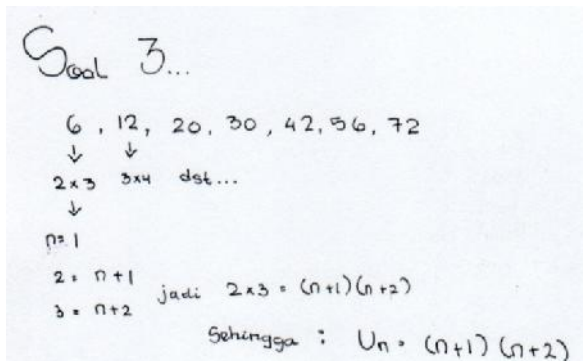 Soal 3...
6, 12, 20, 30, 42, 56, 72
↓ ↓
2x3 3x4 dst...
↓
n=1
2 = n+1
3 = n+2
jadi 2x3 = (n+1)(n+2)
Sehingga : Un = (n+1)(n+2)